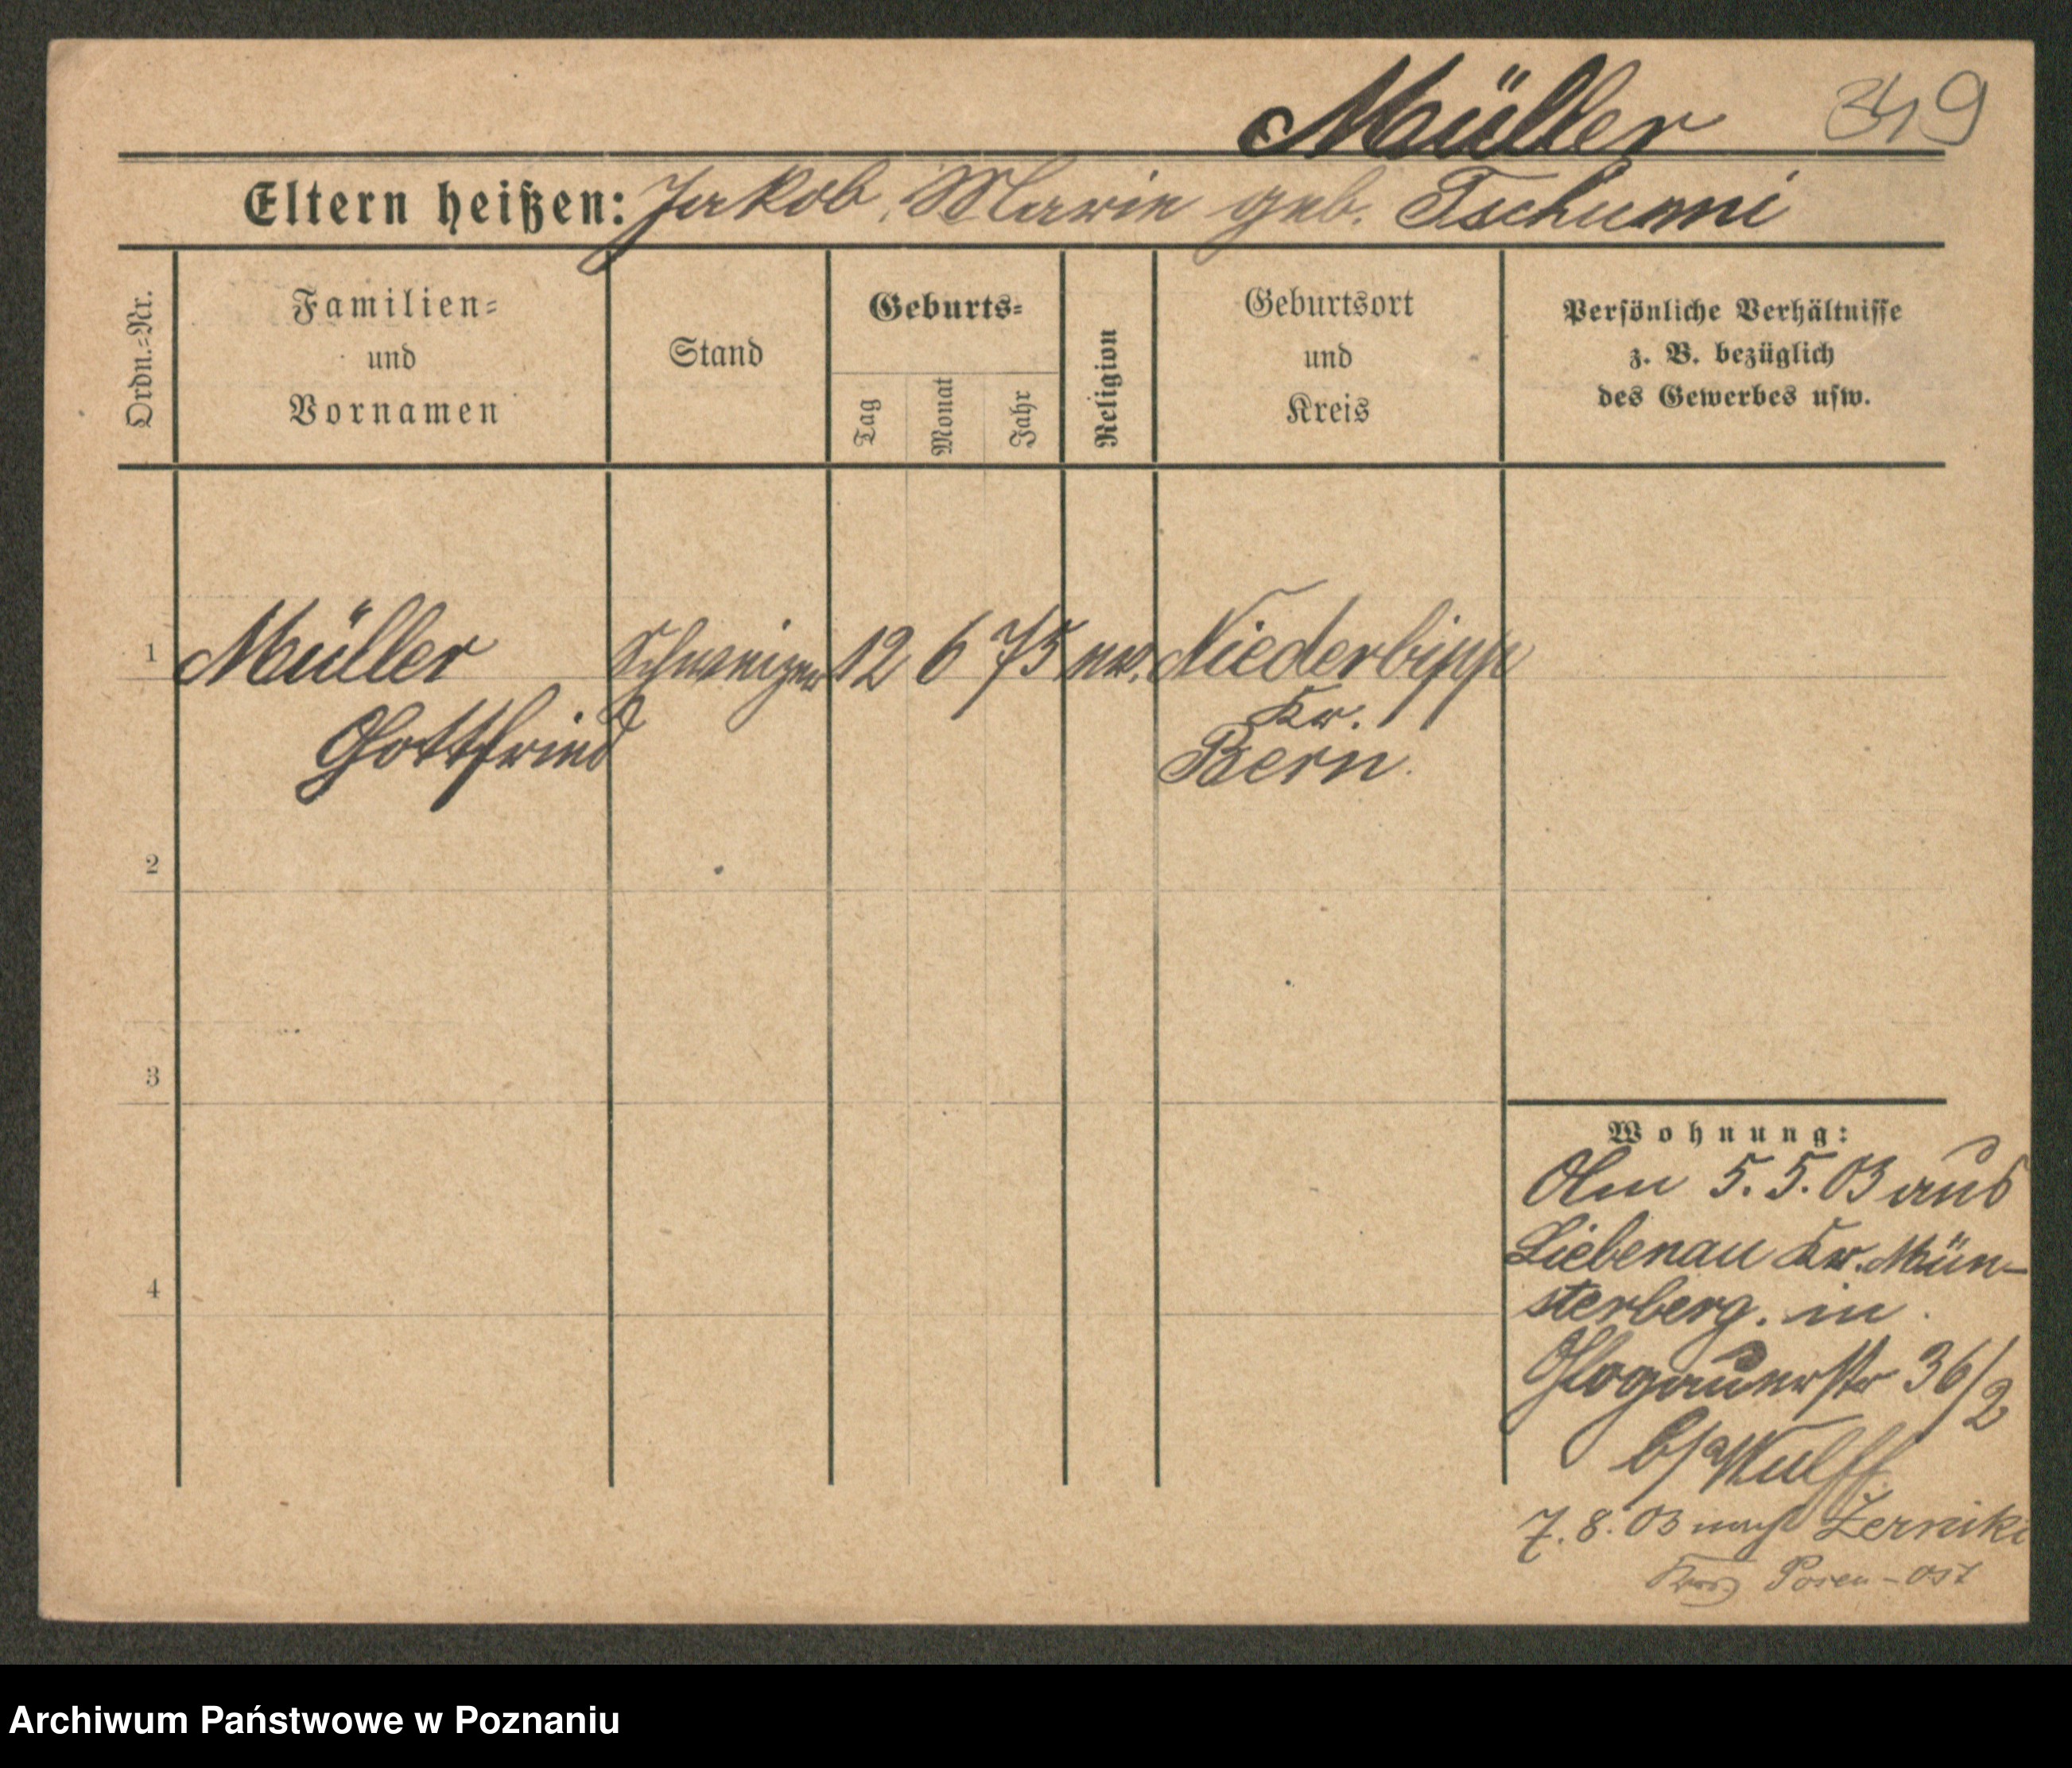 Müller 349
Eltern heißen: Jakob, Marie geb. Tschumi
Ordn.=Nr.
Familien=
und
Vornamen
Stand
Geburts=
Tag
Monat
Jahr
Religion
Geburtsort
und
Kreis
Persönliche Verhältnisse
z. B. bezüglich
des Gewerbes usw.
1 Müller Schweizer 12 6 75 ev. Niederbipp
Gottfried Kr.
Bern.
2
3
4
Wohnung:
Am 5.5.03 aus
Liebenau Kr. Mün-
sterberg. in
Glogauerstr 36/2
b/ Wulff
7.8.03 nach Zerniki
Posen-Ost
Archiwum Państwowe w Poznaniu